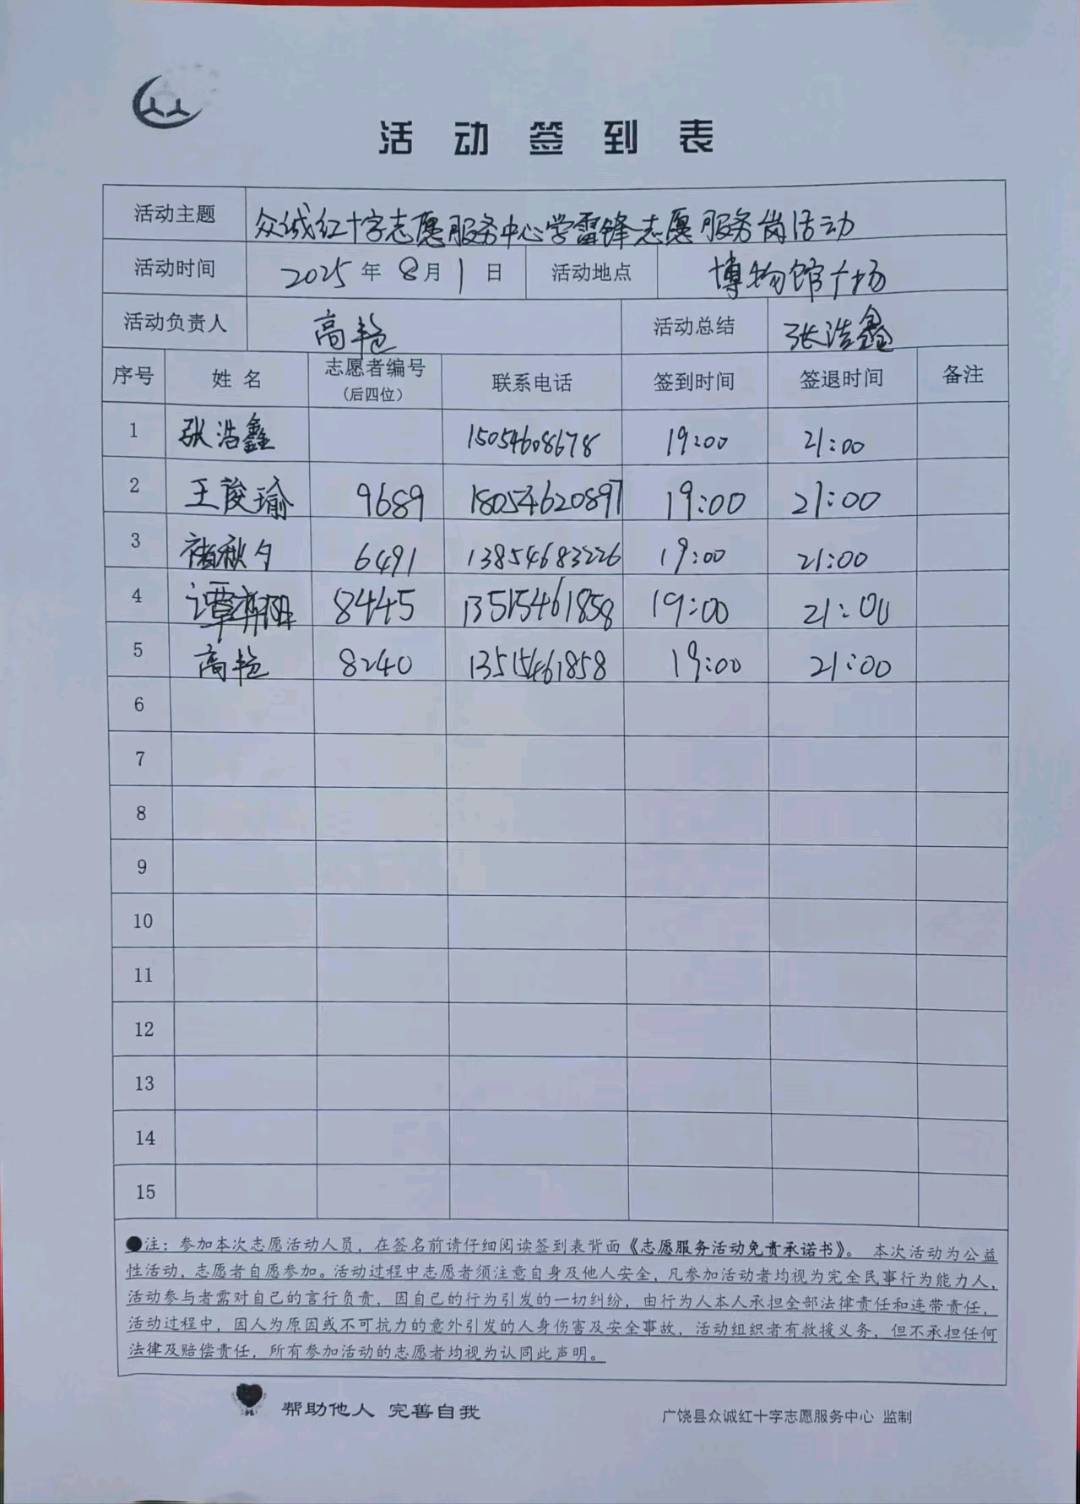 活动签到表
活动主题 众诚红十字志愿服务中心学雷锋志愿服务岗活动
活动时间 2025年8月1日 活动地点 博物馆广场
活动负责人 高艳 活动总结 张浩鑫
序号 姓名 志愿者编号(后四位) 联系电话 签到时间 签退时间 备注
1 张浩鑫 15054608678 19:00 21:00
2 王俊瑜 9689 18054620897 19:00 21:00
3 褚秋夕 6491 13854683226 19:00 21:00
4 谭 8445 13515461858 19:00 21:00
5 高艳 8240 13515461858 19:00 21:00
6
7
8
9
10
11
12
13
14
15
●注:参加本次志愿活动人员,在签名前请仔细阅读签到表背面《志愿服务活动免责承诺书》。本次活动为公益
性活动,志愿者自愿参加。活动过程中志愿者须注意自身及他人安全,凡参加活动者均视为完全民事行为能力人,
活动参与者需对自己的言行负责,因自己的行为引发的一切纠纷,由行为人本人承担全部法律责任和连带责任,
活动过程中,因人为原因或不可抗力的意外引发的人身伤害及安全事故,活动组织者有救援义务,但不承担任何
法律及赔偿责任,所有参加活动的志愿者均视为认同此声明。
帮助他人 完善自我 广饶县众诚红十字志愿服务中心 监制